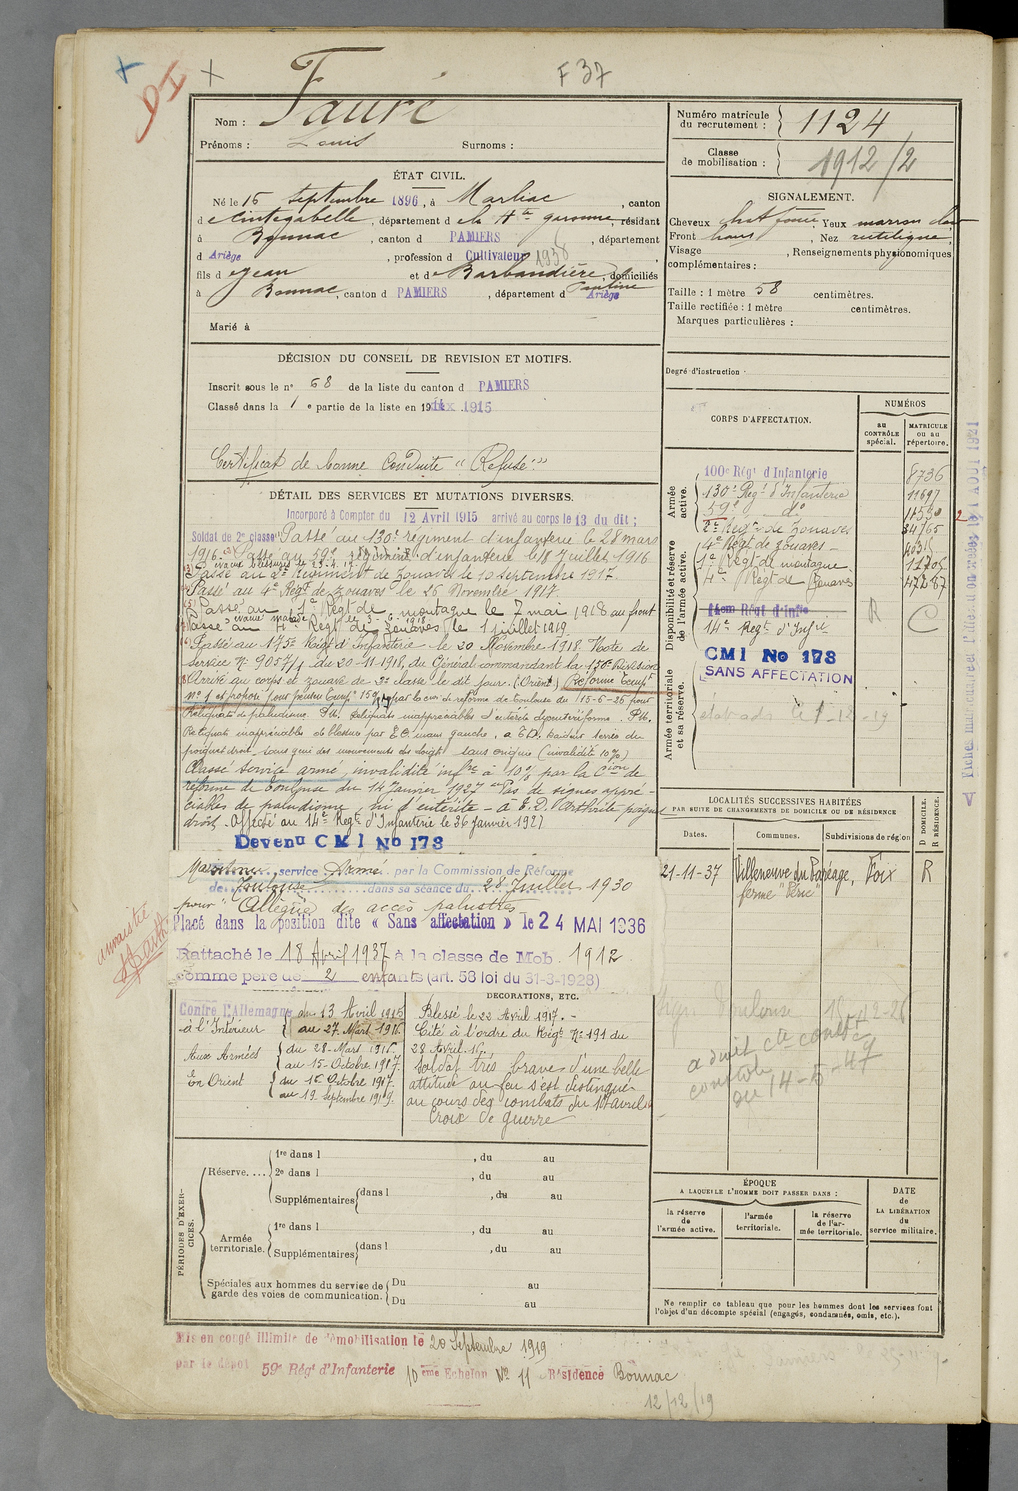 F 37
Nom : Fauré
Prénoms : Louis Surnoms :
Numéro matricule du recrutement : 1124
Classe de mobilisation : 1912/2
ÉTAT CIVIL.
Né le 16 septembre 1896, à Marliac, canton
de Cintegabelle, département de la Hte garonne, résidant
à Bonnac, canton d PAMIERS, département
d Ariège, profession d Cultivateur 1938
fils d e Jean et de Barbandière, domiciliés
à Bonnac, canton d PAMIERS, département d Ariège
Marié à
SIGNALEMENT.
Cheveux chat foncé Yeux marron clair
Front haut, Nez rectiligne
Visage , Renseignements physionomiques
complémentaires :
Taille : 1 mètre 58 centimètres.
Taille rectifiée : 1 mètre centimètres.
Marques particulières :
Degré d'instruction
DÉCISION DU CONSEIL DE REVISION ET MOTIFS.
Inscrit sous le n° 68 de la liste du canton d PAMIERS
Classé dans la 1 e partie de la liste en 1915
Certificat de bonne Conduite "Refusé"
DÉTAIL DES SERVICES ET MUTATIONS DIVERSES.
Incorporé à Compter du 12 Avril 1915 arrivé au corps le 13 du dit ;
Soldat de 2e classe Passé au 130e régiment d'infanterie le 28 mars
1916. Passé au 59e régiment d'infanterie le 18 Juillet 1916
Passé au 2e Régiment de Zouaves le 10 septembre 1917
Passé au 4e Régt de zouaves le 26 Novembre 1917
Passé au 1e Régt de montagne le 7 mai 1918 au front
Passé au 4e Régt de Zouaves le 1 juillet 1919
Passé au 175e Régt d'Infanterie le 20 Novembre 1918. Note de
service N° 9057/1 du 20-11-1918, du Général commandant la 156e Division
Arrivé au corps et zouave de 2e classe le dit jour. (Orient) Réformé Tempre
n° 1 et proposé pour pension Tempre 15% par la con de réforme de Toulouse du 15-6-26 pour
Reliquats de paludisme. Reliquats inappréciables d'entérite dysentériforme.
Reliquats inappréciables de blessure par E.O. main gauche.
poignet droit, sans gêne des mouvements des doigts sans origine (invalidité 10%)
Classé service armé, invalidité infre à 10% par la Cion de
réforme de Toulouse du 14 Janvier 1927 Pas de signes appré-
ciables de paludisme, ni d'entérite - à E.D. Arthrite poignet
droit - Affecté au 14e Régt d'Infanterie le 36 Janvier 1927
Devenu CMI No 173
Maintenu service Armé par la Commission de Réforme
de Toulouse dans sa séance du 28 Juillet 1930
pour "Allègue des accès palustres"
Placé dans la position dite « Sans affectation » le 24 MAI 1936
Rattaché le 18 Avril 1937 à la classe de Mob. 1912
comme père de 2 enfants (art. 58 loi du 31-3-1928)
amnistié
CORPS D'AFFECTATION.
NUMÉROS
au CONTRÔLE spécial.
MATRICULE ou au répertoire.
Armée active.
Disponibilité et réserve de l'armée active.
Armée territoriale et sa réserve.
100e Régt d'Infanterie 8736
130e Régt d'Infanterie 11697
59e do 11550 2
2e Régt de Zouaves 34765
4e Régt de zouaves
1e Régt de montagne
4e Régt de Zouaves 47287
14em Régt d'Inftie R C
14e Régt d'Infie
CMI No 173
SANS AFFECTATION
LOCALITÉS SUCCESSIVES HABITÉES
PAR SUITE DE CHANGEMENTS DE DOMICILE OU DE RÉSIDENCE
Dates. Communes. Subdivisions de région
D DOMICILE. R RÉSIDENCE.
21-11-37 Villeneuve du Paréage, Foix R
ferme "Péric"
Contre l'Allemagne
à l'Intérieur du 13 Avril 1915
au 27 Mars 1916
Aux Armées du 28-Mars 1916.
au 15-Octobre 1917.
En Orient du 16 Octobre 1917.
au 19 Septembre 1919.
DÉCORATIONS, ETC.
Blessé le 22 Avril 1917. -
Cité à l'ordre du Régt N° 191 du
28 Avril
Soldat très brave d'une belle
attitude au feu s'est distingué
au cours des combats du 17 avril
Croix de guerre
a droit cte comb
14-5-47
PÉRIODES D'EXERCICES.
Réserve....
1re dans l , du au
2e dans l , du au
Supplémentaires dans l , du au
Armée territoriale.
1re dans l , du au
Supplémentaires dans l , du au
Spéciales aux hommes du service de garde des voies de communication.
Du au
Du au
ÉPOQUE
A LAQUELLE L'HOMME DOIT PASSER DANS :
la réserve de l'armée active.
l'armée territoriale.
la réserve de l'armée territoriale.
DATE DE LA LIBÉRATION du service militaire.
Ne remplir ce tableau que pour les hommes dont les services font
l'objet d'un décompte spécial (engagés, condamnés, omis, etc.).
Mis en congé illimité de démobilisation le 20 Septembre 1919
par le dépôt 59e Régt d'Infanterie 10ème Echelon No 11 Résidence Bonnac
12/12/19